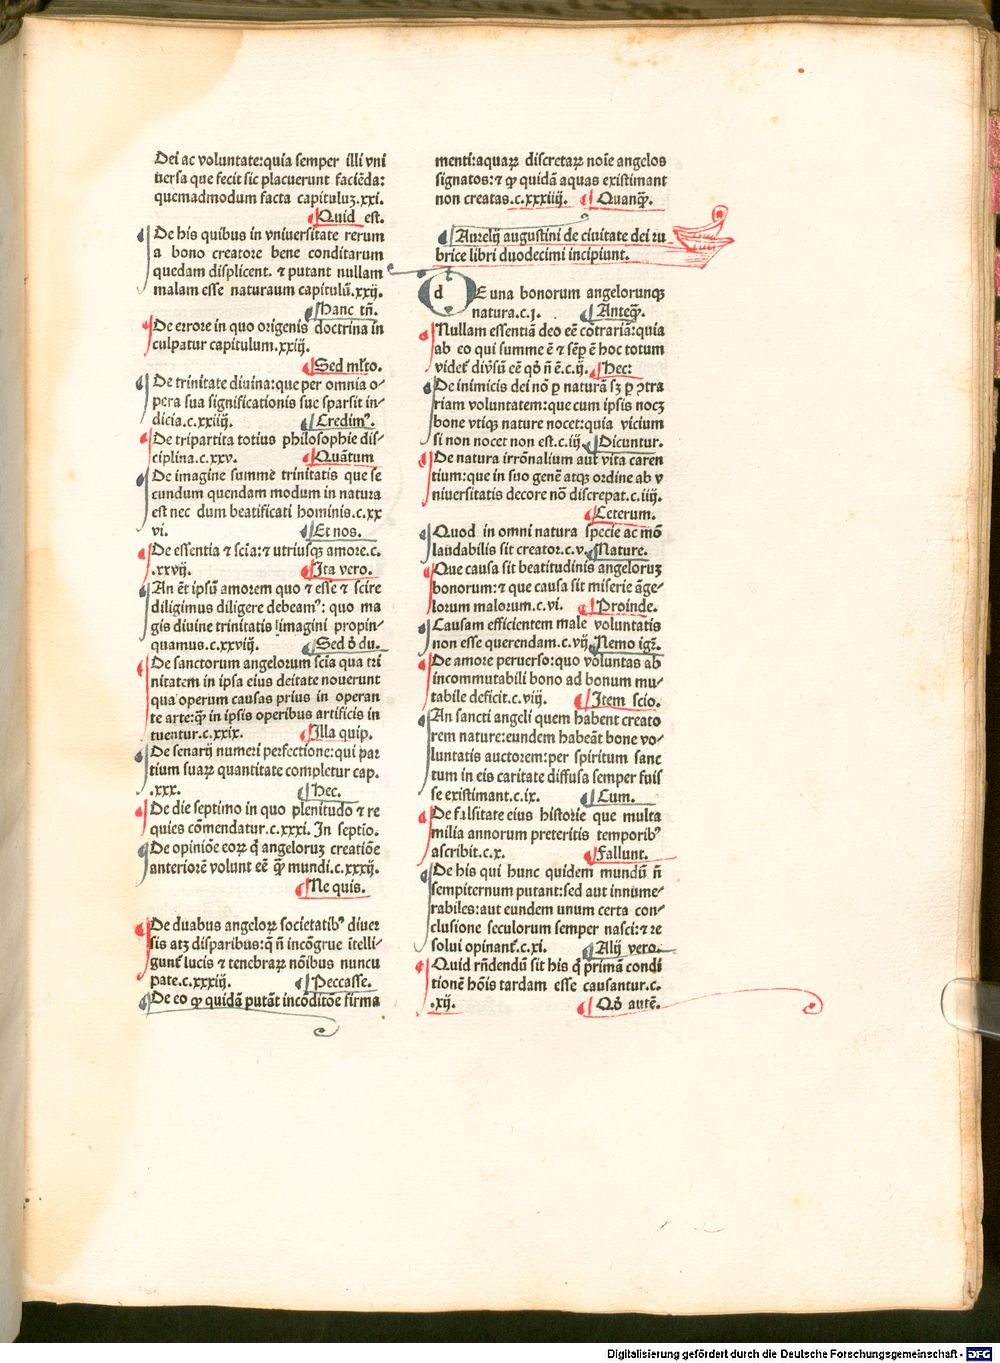 Dei ac voluntate:quia semper illi vni
uersa que fecit sic placuerunt faciēda:
quemadmodum facta capituluꝫ.xxi.
Quid est.
De his quibus in vniuersitate rerum
a bono creatore bene conditarum
quedam displicent. ⁊ putant nullam
malam esse naturaum capitulū.xxij.
Hanc tn̄.
De errore in quo origenis doctrina in
culpatur capitulum.xxiij.
Sed ml̄to.
De trinitate diuina:que per omnia o⸗
pera sua significationis sue sparsit in⸗
dicia.c.xxiiij. Credimꝰ.
De tripartita totius philosophie dis⸗
ciplina.c.xxv. Quātum
De imagine summe trinitatis que se
cundum quendam modum in natura
est nec dum beatificati hominis.c.xx
vi. Et nos.
De essentia ⁊ scīa:⁊ utriusqꝫ amore.c.
.xxvij. Ita vero.
An ēt ipsū amorem quo ⁊ esse ⁊ scire
diligimus diligere debeamꝰ: quo ma
gis diuine trinitatis imagini propin⸗
quamus.c.xxviij. Sed ꝺ̄ du.
De sanctorum angelorum scīa qua tri
nitatem in ipsa eius deitate nouerunt
qua operum causas prius in operan
te arte:q̄ꝫ in ipsis operibus artificis in
tuentur.c.xxix. Illa quip.
De senarij numeri perfectione:qui par
tium suaꝝ quantitate completur cap.
.xxx. Hec.
De die septimo in quo plenitudo ⁊ re
quies cōmendatur.c.xxxi. In septīo.
De opiniōe eoꝝ q̄ angeloruꝫ creatiōe
anteriorē volunt eē q̄ꝫ mundi.c.xxxij.
Ne quis.
De duabus angeloꝝ societatibꝰ diuer
sis atꝫ disparibus:q̄ n̄ incōgrue itelli⸗
gunt̄ lucis ⁊ tenebraꝝ nōibus nuncu
pate.c.xxxiij. Peccasse.
De eo ꝙ quidā putāt incōditōe firma
menti:aquaꝝ discretaꝝ noīe angelos
signatos:⁊ ꝙ quidā aquas existimant
non creatas.c.xxxiiij. Quanq̄ꝫ.
Aurelij augustini de ciuitate dei ru⸗
brice libri duodecimi incipiunt.
d E una bonorum angelorunqꝫ
natura.c.j. Anteq̄ꝫ.
Nullam essentiā deo eē cōtrariā:quia
ab eo qui summe ē ⁊ sēp̄ ē hoc totum
videt̄ diūsū eē qꝺ̄ n̄ ē.c.ij. Hec:
De inimicis dei nō ꝑ naturā sꝫ ꝑ ꝯtra
riam voluntatem:que cum ipsis nocꝫ
bone vtiqꝫ nature nocet:quia vicium
si non nocet non est.c.iij. Dicuntur.
De natura irrōnalium aut vita caren
tium:que in suo genē atqꝫ ordine ab v
niuersitatis decore nō discrepat.c.iiij.
Ceterum.
Quod in omni natura specie ac mō
laudabilis sit creator.c.v. Nature.
Que causa sit beatitudinis angeloruꝫ
bonorum:⁊ que causa sit miserie āge⸗
lorum malorum.c.vi. Proinde.
Causam efficientem male voluntatis
non esse querendam.c.vij. Nemo igr̄.
De amore peruerso:quo voluntas ab
incommutabili bono ad bonum mu⸗
tabile deficit.c.viij. Item scio.
An sancti angeli quem habent creato
rem nature:eundem habeāt bone vo⸗
luntatis auctorem:per spiritum sanc
tum in eis caritate diffusa semper fuis
se existimant.c.ix. Cum.
De falsitate eius historie que multa
milia annorum preteritis temporibꝰ
ascribit.c.x. Fallunt.
De his qui hunc quidem mundū n̄
sempiternum putant:sed aut innume⸗
rabiles:aut eundem unum certa con⸗
clusione seculorum semper nasci:⁊ re
solui opinant̄.c.xi. Alij vero.
Quid rn̄dendū sit his q̄ primā condi
tionē hōis tardam esse causantur.c.
.xij. Qꝺ̄ autē.
Digitalisierung gefördert durch die Deutsche Forschungsgemeinschaft - DFG